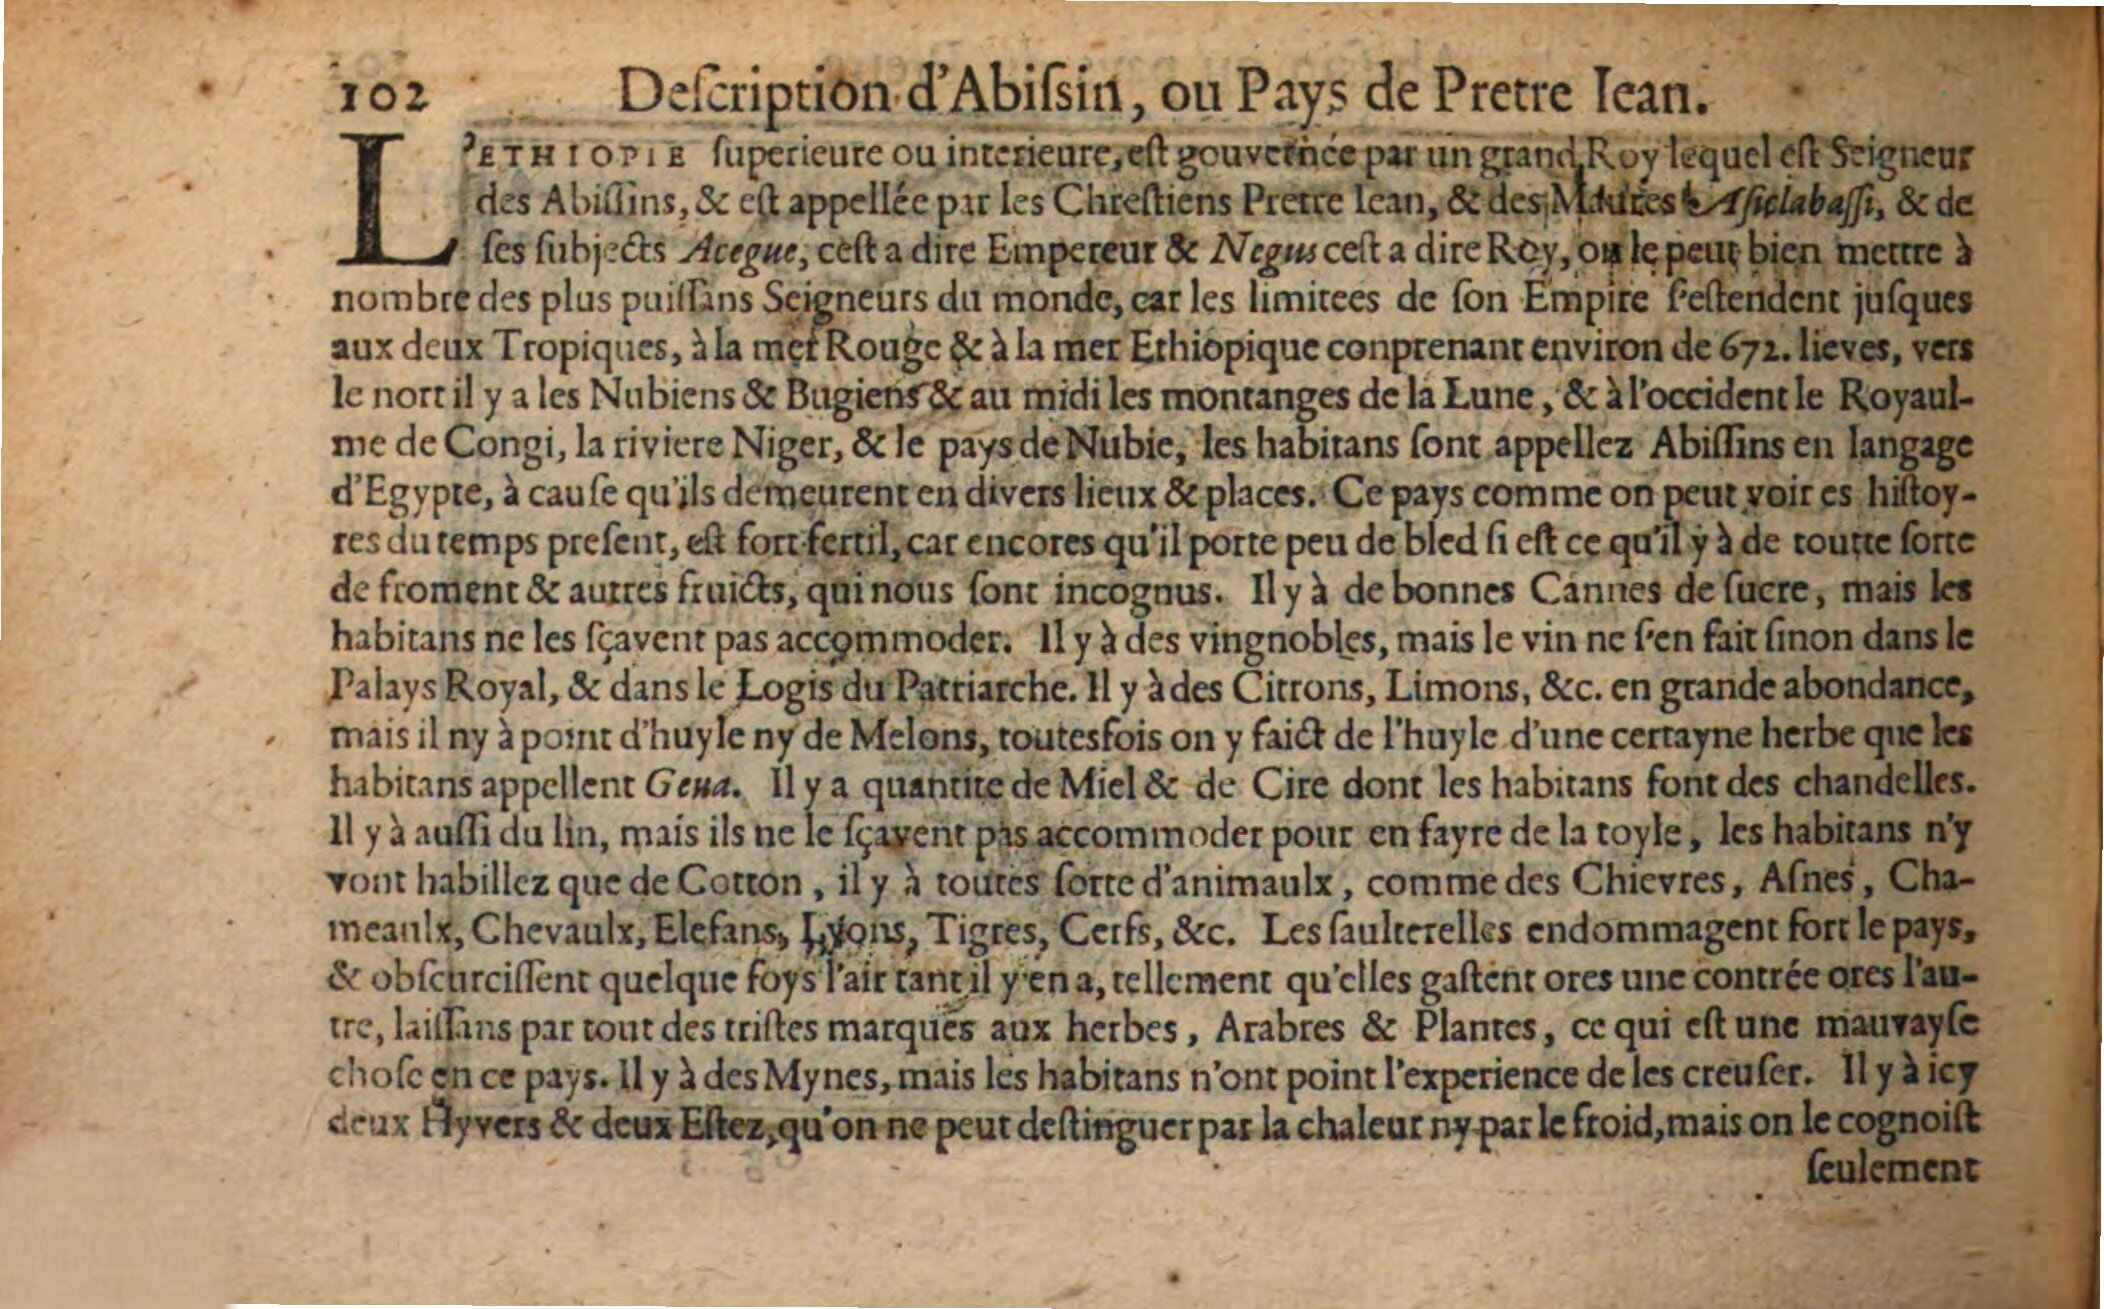 102 Deſcription d'Abiſsin, ou Pays de Pretre Iean.
L'ETHIOPIE ſuperieure ou interieure, eſt gouvernée par un grand Roy lequel eſt Seigneur
des Abiſſins, & eſt appellée par les Chreſtiens Pretre Iean, & des Maures Aſiclabaſſi, & de
ſes ſubjects Acegue, ceſt a dire Empereur & Negus ceſt a dire Roy, on le peut bien mettre à
nombre des plus puiſſans Seigneurs du monde, car les limitees de ſon Empire ſ'eſtendent juſques
aux deux Tropiques, à la mer Rouge & à la mer Ethiopique conprenant environ de 672. lieves, vers
le nort il y a les Nubiens & Bugiens & au midi les montanges de la Lune, & à l'occident le Royaul-
me de Congi, la riviere Niger, & le pays de Nubie, les habitans ſont appellez Abiſſins en langage
d'Egypte, à cauſe qu'ils demeurent en divers lieux & places. Ce pays comme on peut voir es hiſtoy-
res du temps preſent, eſt fort fertil, car encores qu'il porte peu de bled ſi eſt ce qu'il y à de toutte ſorte
de froment & autres fruicts, qui nous ſont incognus. Il y à de bonnes Cannes de ſucre, mais les
habitans ne les ſçavent pas accommoder. Il y à des vingnobles, mais le vin ne ſ'en fait ſinon dans le
Palays Royal, & dans le Logis du Patriarche. Il y à des Citrons, Limons, &c. en grande abondance,
mais il ny à point d'huyle ny de Melons, toutesfois on y faict de l'huyle d'une certayne herbe que les
habitans appellent Gena. Il y a quantite de Miel & de Cire dont les habitans font des chandelles.
Il y à auſſi du lin, mais ils ne le ſçavent pas accommoder pour en fayre de la toyle, les habitans n'y
vont habillez que de Cotton, il y à toutes ſorte d'animaulx, comme des Chievres, Aſnes, Cha-
meaulx, Chevaulx, Elefans, Lyons, Tigres, Cerfs, &c. Les ſaulterelles endommagent fort le pays,
& obſcurciſſent quelque foys l'air tant il y en a, tellement qu'elles gaſtent ores une contrée ores l'au-
tre, laiſſans par tout des triſtes marques aux herbes, Arabres & Plantes, ce qui eſt une mauvayſe
choſe en ce pays. Il y à des Mynes, mais les habitans n'ont point l'experience de les creuſer. Il y à icy
deux Hyvers & deux Eſtez, qu'on ne peut deſtinguer par la chaleur ny par le froid, mais on le cognoiſt
ſeulement